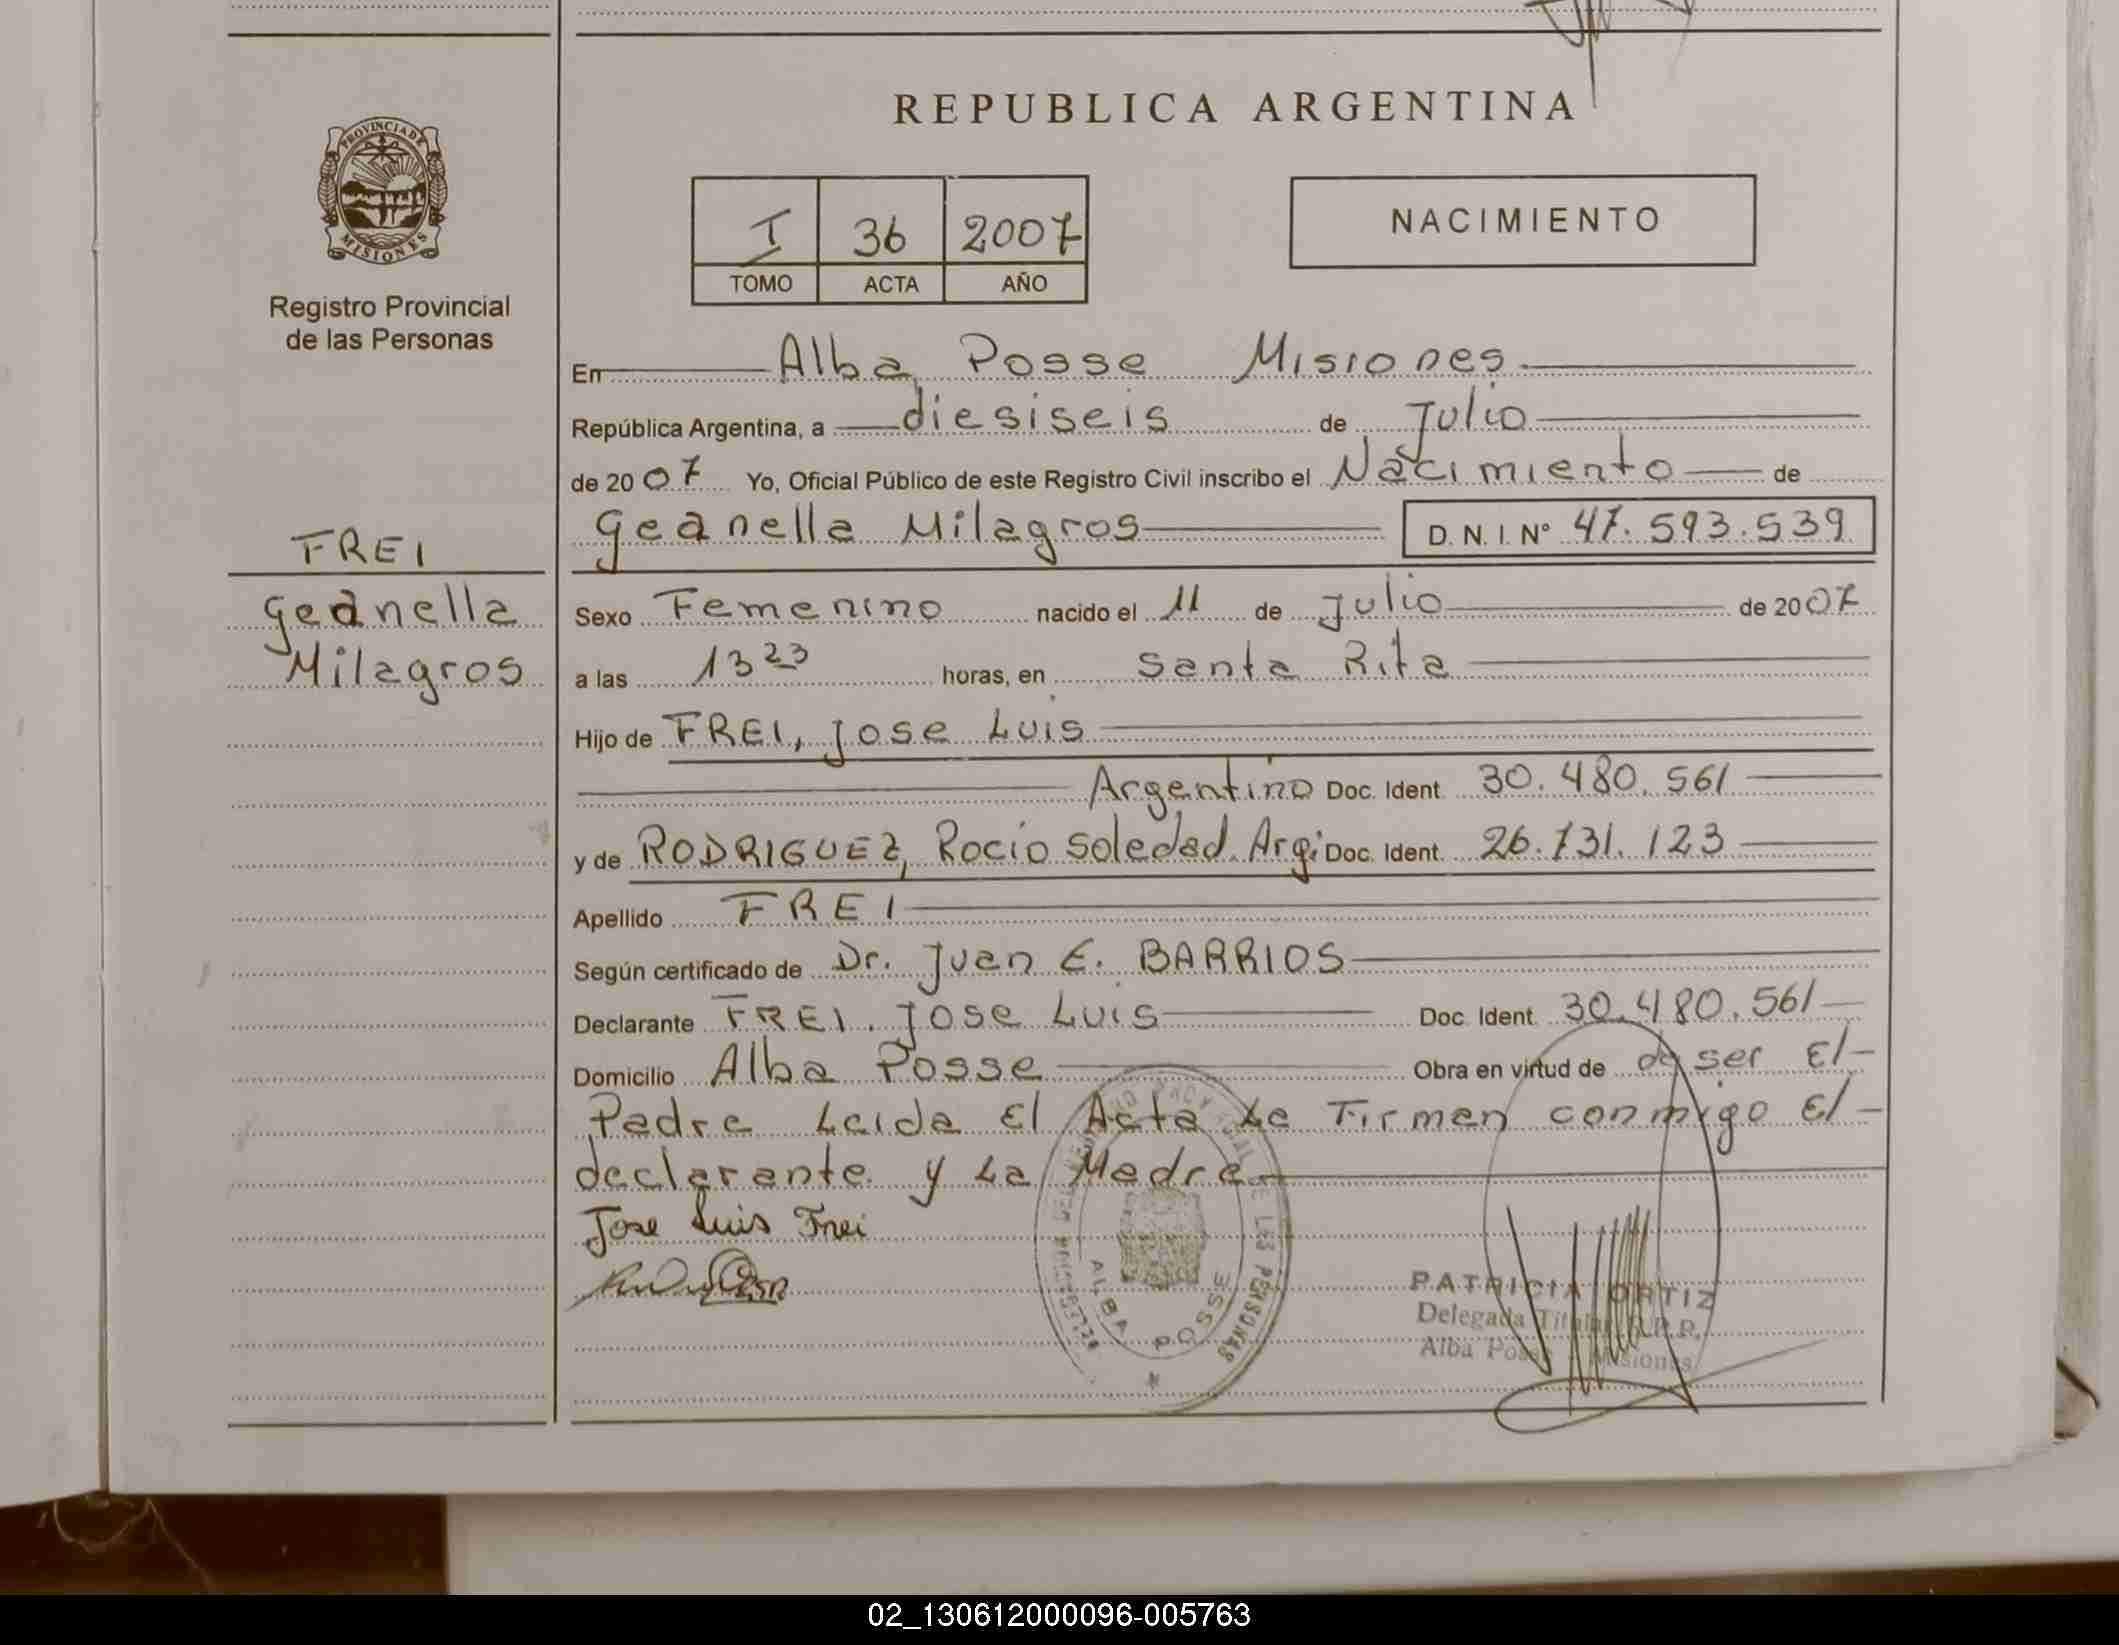 REPUBLICA ARGENTINA
PROVINCIA DE
MISIONES
Registro Provincial
de las Personas
I 36 2007
TOMO ACTA AÑO
NACIMIENTO
En Alba Posse Misiones
República Argentina, a diesiseis de Julio
de 2007 Yo, Oficial Público de este Registro Civil inscribo el Nacimiento de
Geanella Milagros D. N. I. Nº 47.593.539
FREI
Geanella
Milagros
Sexo Femenino nacido el 11 de Julio de 2007
a las 13 23 horas, en Santa Rita
Hijo de FREI, Jose Luis
Argentino Doc. Ident. 30.480.561
y de RODRIGUEZ, Rocio Soledad. Arg: Doc. Ident. 26.731.123
Apellido FREI
Según certificado de Dr. Juan E. BARRIOS
Declarante FREI. Jose Luis Doc. Ident. 30.480.561
Domicilio Alba Posse Obra en virtud de de ser El
Padre Leida El Acta La Firman conmigo El
declarante y La Madre
Jose Luis Frei
ALBA POSSE
DE LAS PERSONAS
PATRICIA ORTIZ
Delegada Titular R.P.P.
Alba Posse - Misiones
02_130612000096-005763